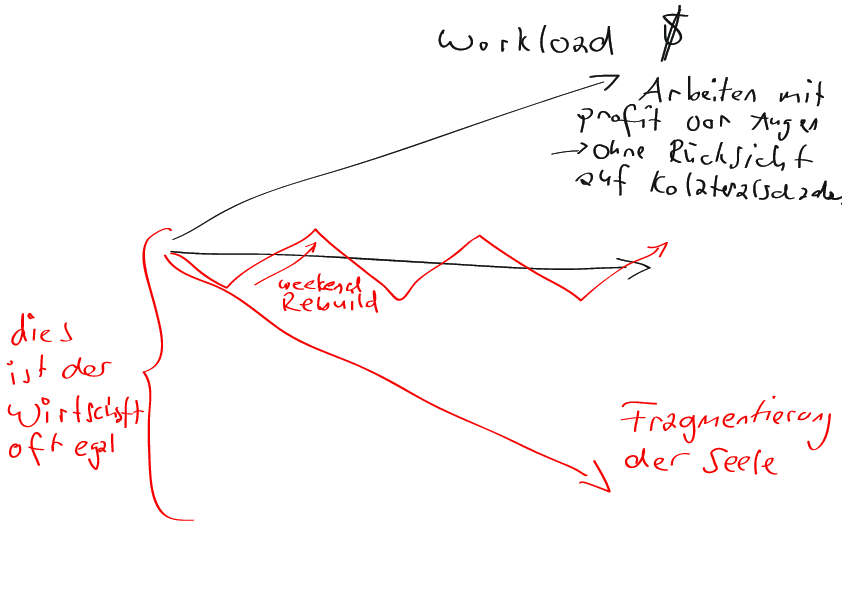 Workload $
Arbeiten mit
profit vor Augen
→ ohne Rücksicht
auf Kolateralschaden
weekend
Rebuild
dies
ist der
Wirtschaft
oft egal
Fragmentierung
der Seele